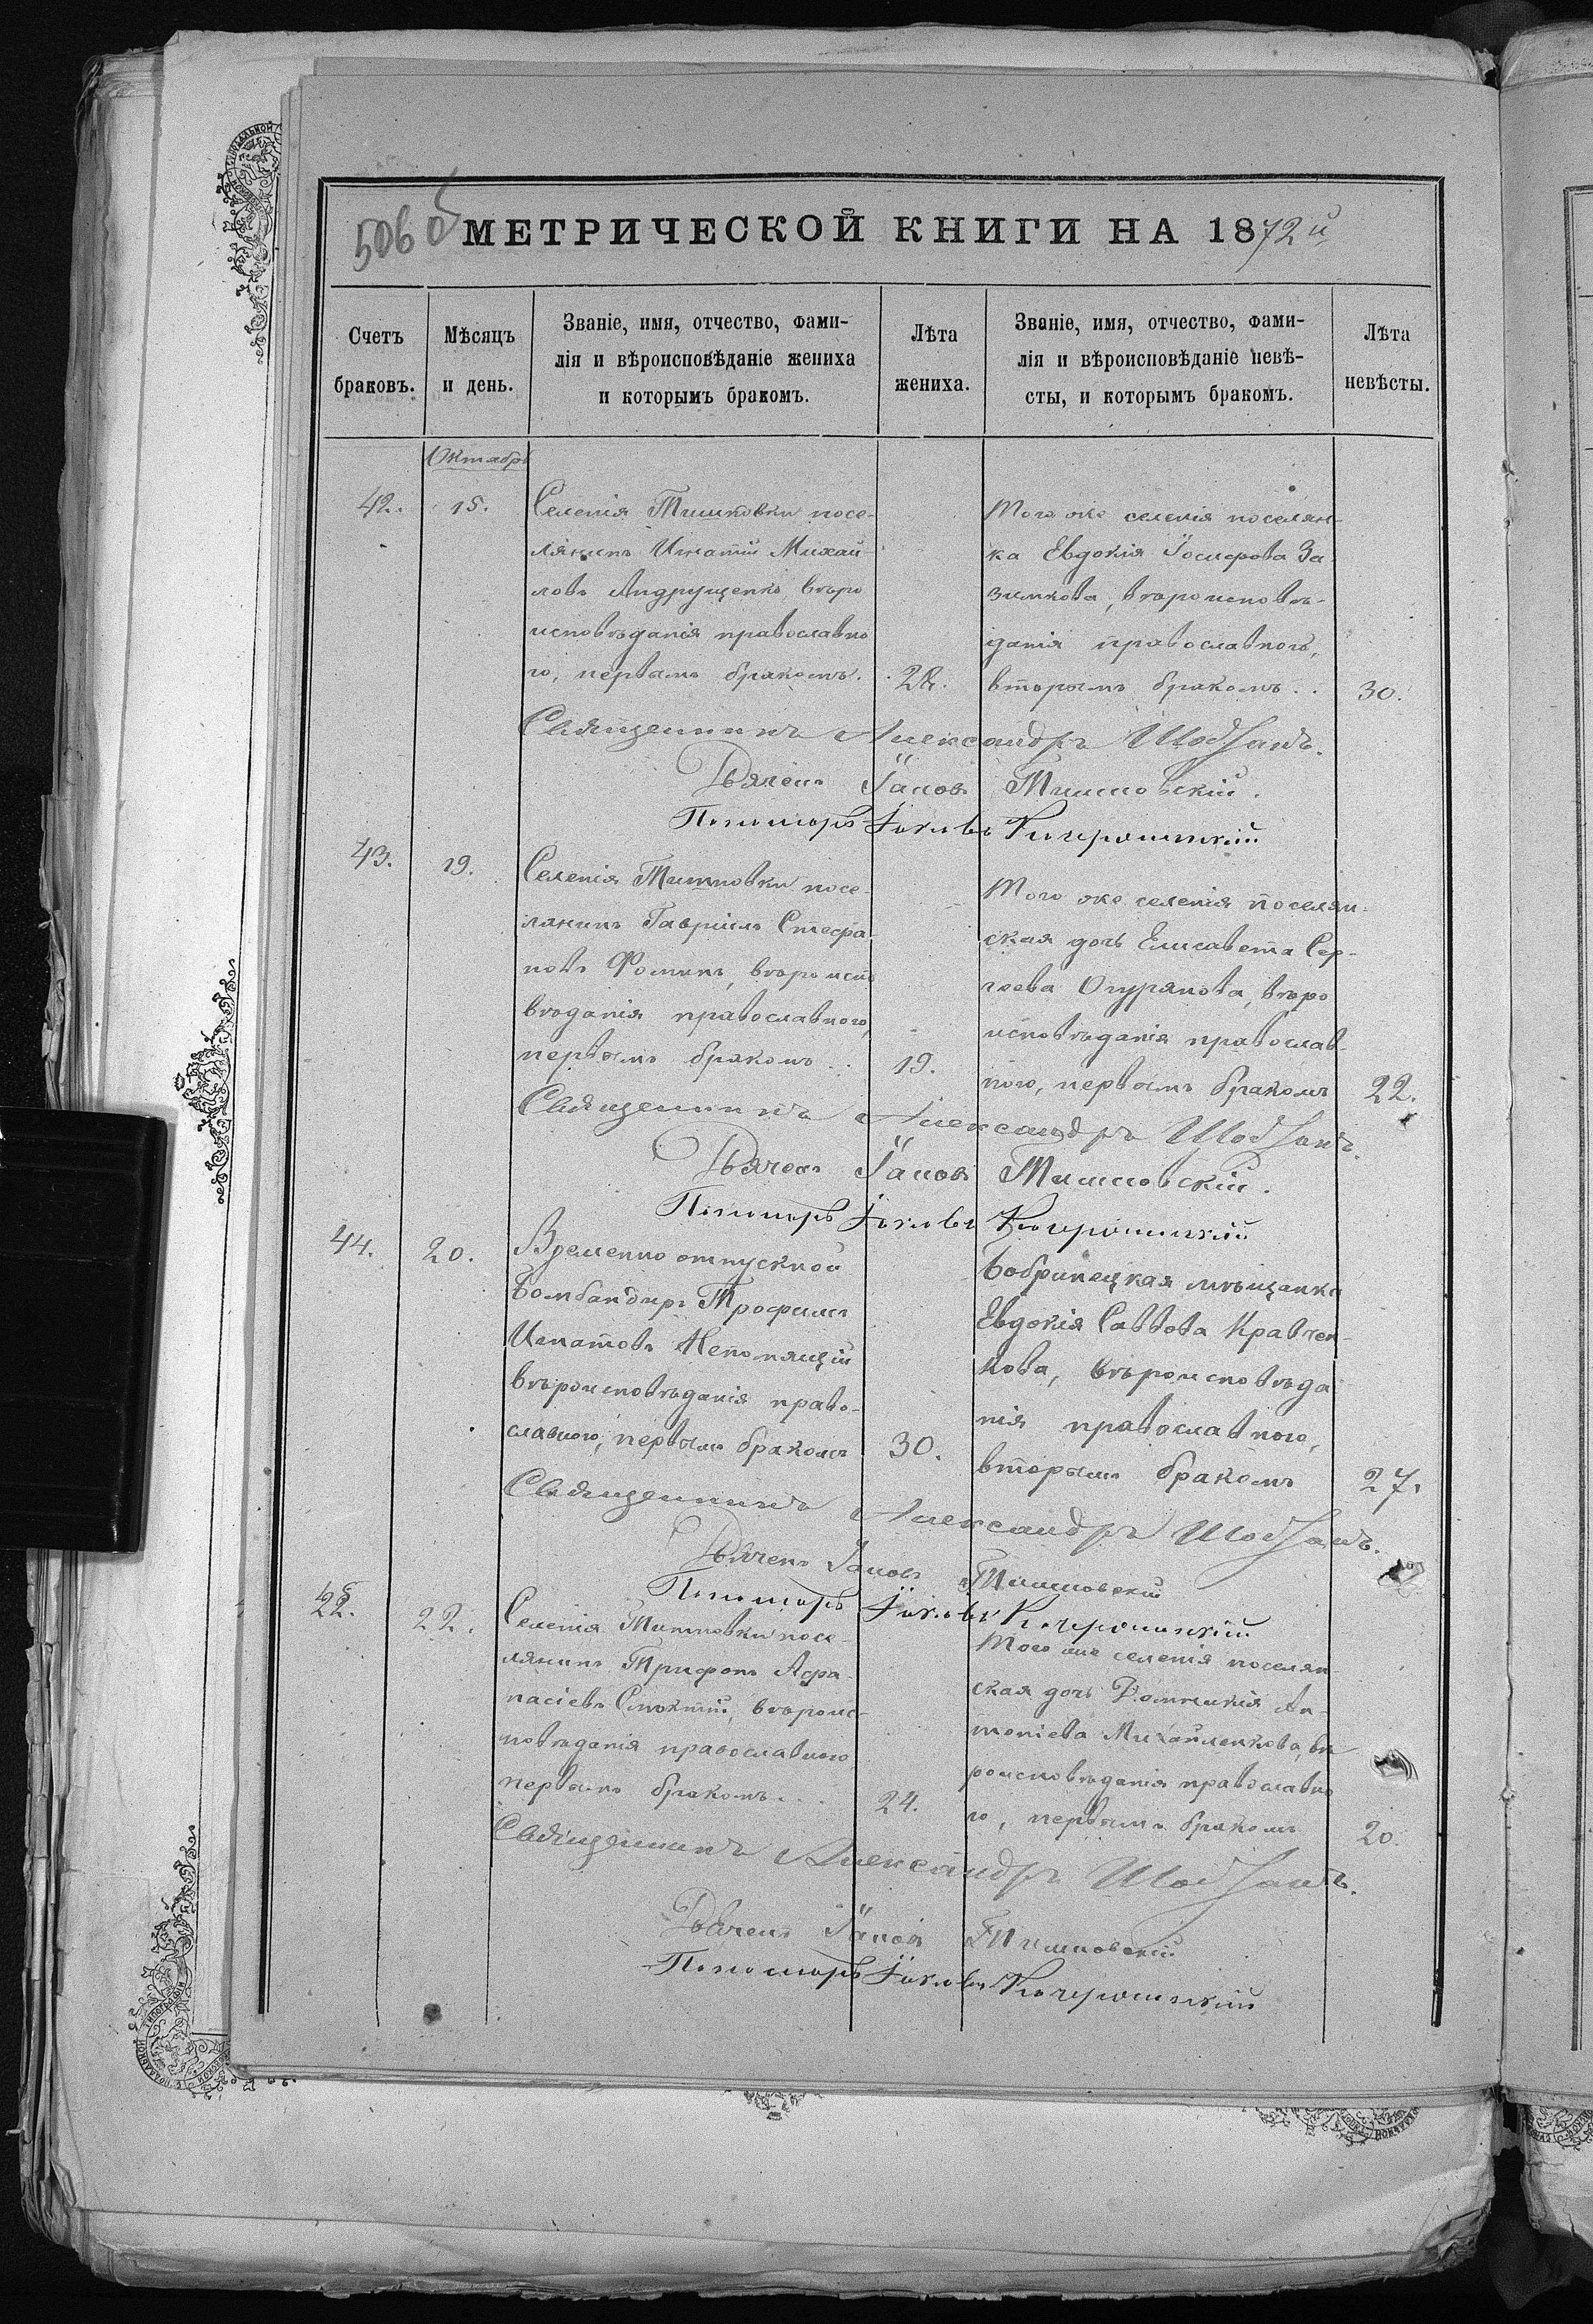 506 об
МЕТРИЧЕСКОЙ КНИГИ НА 1872й
Счетъ браковъ.
Мѣсяцъ и день.
Званіе, имя, отчество, фами-
лія и вѣроисповѣданіе жениха
и которымъ бракомъ.
Лѣта жениха.
Званіе, имя, отчество, фами-
лія и вѣроисповѣданіе невѣ-
сты, и которымъ бракомъ.
Лѣта невѣсты.
Октябрь
42.
15.
Селенія Тишковки посе-
лянинъ Игнатій Михай-
ловъ Андрущенко, вѣро
исповѣданія православно
го, первымъ бракомъ.
28.
Того же селенія поселян-
ка Евдокія Іосифова За
зимкова, вѣроисповѣ-
данія православнаго,
вторымъ бракомъ..
30.
Священникъ Александръ
Дьячекъ Іаковъ Тишковскій.
Пономарь Іаковъ
43.
19.
Селенія Тишковки посе-
лянинъ Гавріилъ Стефа
новъ Фоминъ, вѣроиспо
вѣданія православного,
первымъ бракомъ..
19.
Того же селенія поселян-
ская дочь Елисавета Сер-
гіева Огурякова, вѣро
исповѣданія православ-
ного, первымъ бракомъ
22.
Священникъ Александръ
Дьячекъ Іаковъ Тишковскій.
Пономарь Іаковъ
44.
20.
Временно отпускной
Бомбандиръ Трофимъ
Игнатовъ Непомящій
вѣроисповѣданія право-
славного, первымъ бракомъ
30.
Бобринецкая мѣщанка
Евдокія Саввова Кравчен-
кова, вѣроисповѣда
нія православного,
вторымъ бракомъ
27.
Священникъ Александръ
Дьячекъ Іаковъ Тишковскій
Пономарь Іаковъ
22.
Селенія Тишковки посе-
лянинъ Трифонъ Афа-
насіевъ вѣроис-
повѣданія православного
первымъ бракомъ...
24.
Того же селенія поселян
ская дочь Домникія Ан-
тоніева Михайленкова, вѣ
роисповѣданія православно
го, первымъ бракомъ
20.
Священникъ Александръ
Дьячекъ Іаковъ Тишковскій
Пономарь Іаковъ